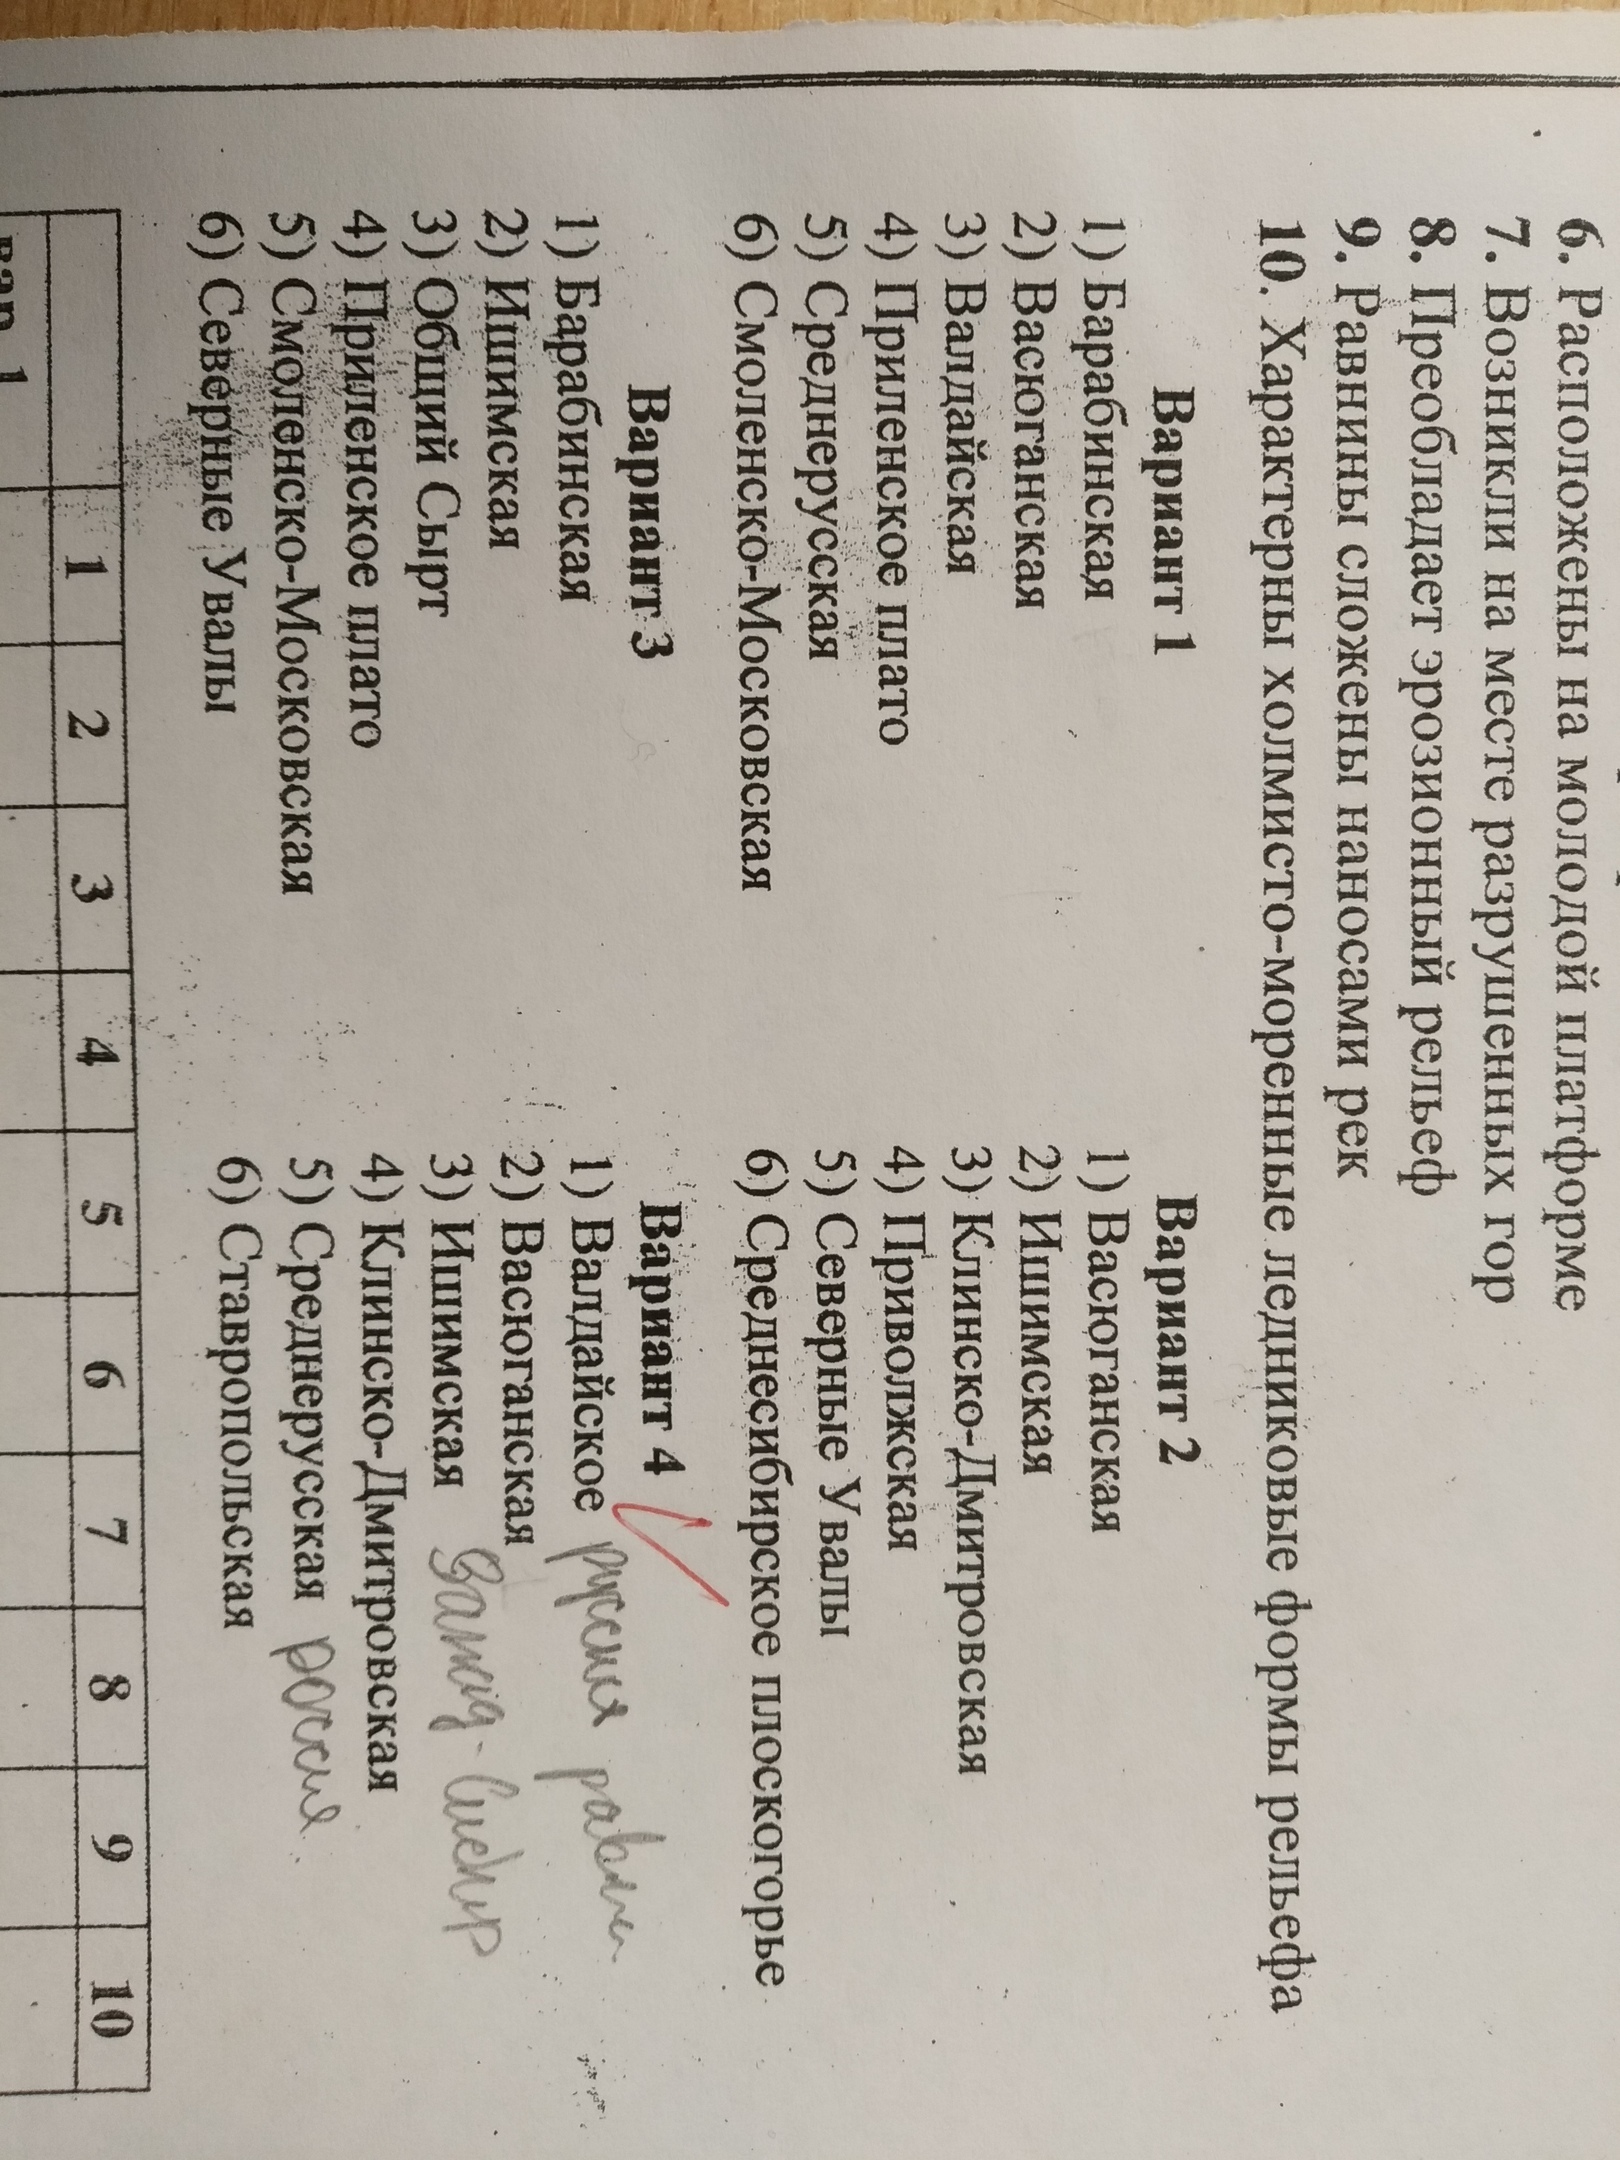 6. Расположены на молодой платформе
7. Возникли на месте разрушенных гор
8. Преобладает эрозионный рельеф
9. Равнины сложены наносами рек
10. Характерны холмисто-моренные ледниковые формы рельефа
Вариант 1
1) Барабинская
2) Васюганская
3) Валдайская
4) Приленское плато
5) Среднерусская
6) Смоленско-Московская
Вариант 2
1) Васюганская
2) Ишимская
3) Клинско-Дмитровская
4) Приволжская
5) Северные Увалы
6) Среднесибирское плоскогорье
Вариант 3
1) Барабинская
2) Ишимская
3) Общий Сырт
4) Приленское плато
5) Смоленско-Московская
6) Северные Увалы
Вариант 4
1) Валдайское
2) Васюганская
3) Ишимская
4) Клинско-Дмитровская
5) Среднерусская
6) Ставропольская
1 2 3 4 5 6 7 8 9 10